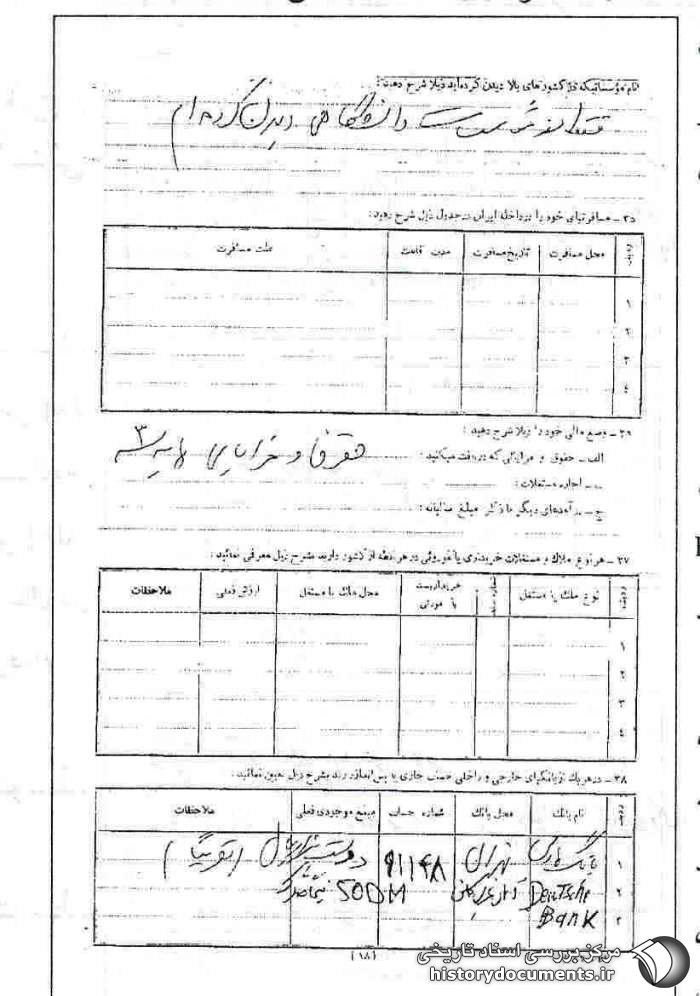 نام مؤسساتیکه در کشورهای بالا دیدن کرده‌اید ذیلا شرح دهید:
دانشگاهی دیدن کرده ام
۳۵ ـ مسافرتهای خود را در داخله ایران در جدول ذیل شرح دهید:
ردیف محل مسافرت تاریخ مسافرت مدت اقامت علت مسافرت
۱
۲
۳
۴
۳۶ ـ وضع مالی خود را ذیلا شرح دهید:
الف ـ حقوق و مزایائی که دریافت میکنید: حقوق و مزایای پایه ۳
ب ـ اجاره مستغلات:
ج ـ درآمدهای دیگر با ذکر مبلغ سالیانه:
۳۷ ـ هر نوع ملک و مستغلات خریداری یا موروثی در هر نقطه از کشور دارید بشرح ذیل معرفی نمائید:
ردیف نوع ملک یا مستغل خریداریست یا موروثی محل ملک یا مستغل ارزش فعلی ملاحظات
۱
۲
۳
۴
۳۸ ـ در هر یک از بانکهای خارجی و داخلی حساب جاری یا پس‌انداز دارید بشرح ذیل تعیین نمائید:
ردیف نام بانک محل بانک شماره حساب مبلغ موجودی فعلی ملاحظات
۱ بانک ملی تهران ۹۱۱۴۸ دویست هزار ریال (تقریباً)
۲ Deutsche 500DM
۳ Bank
(۱۸)
مرکز بررسی اسناد تاریخی
historydocuments.ir